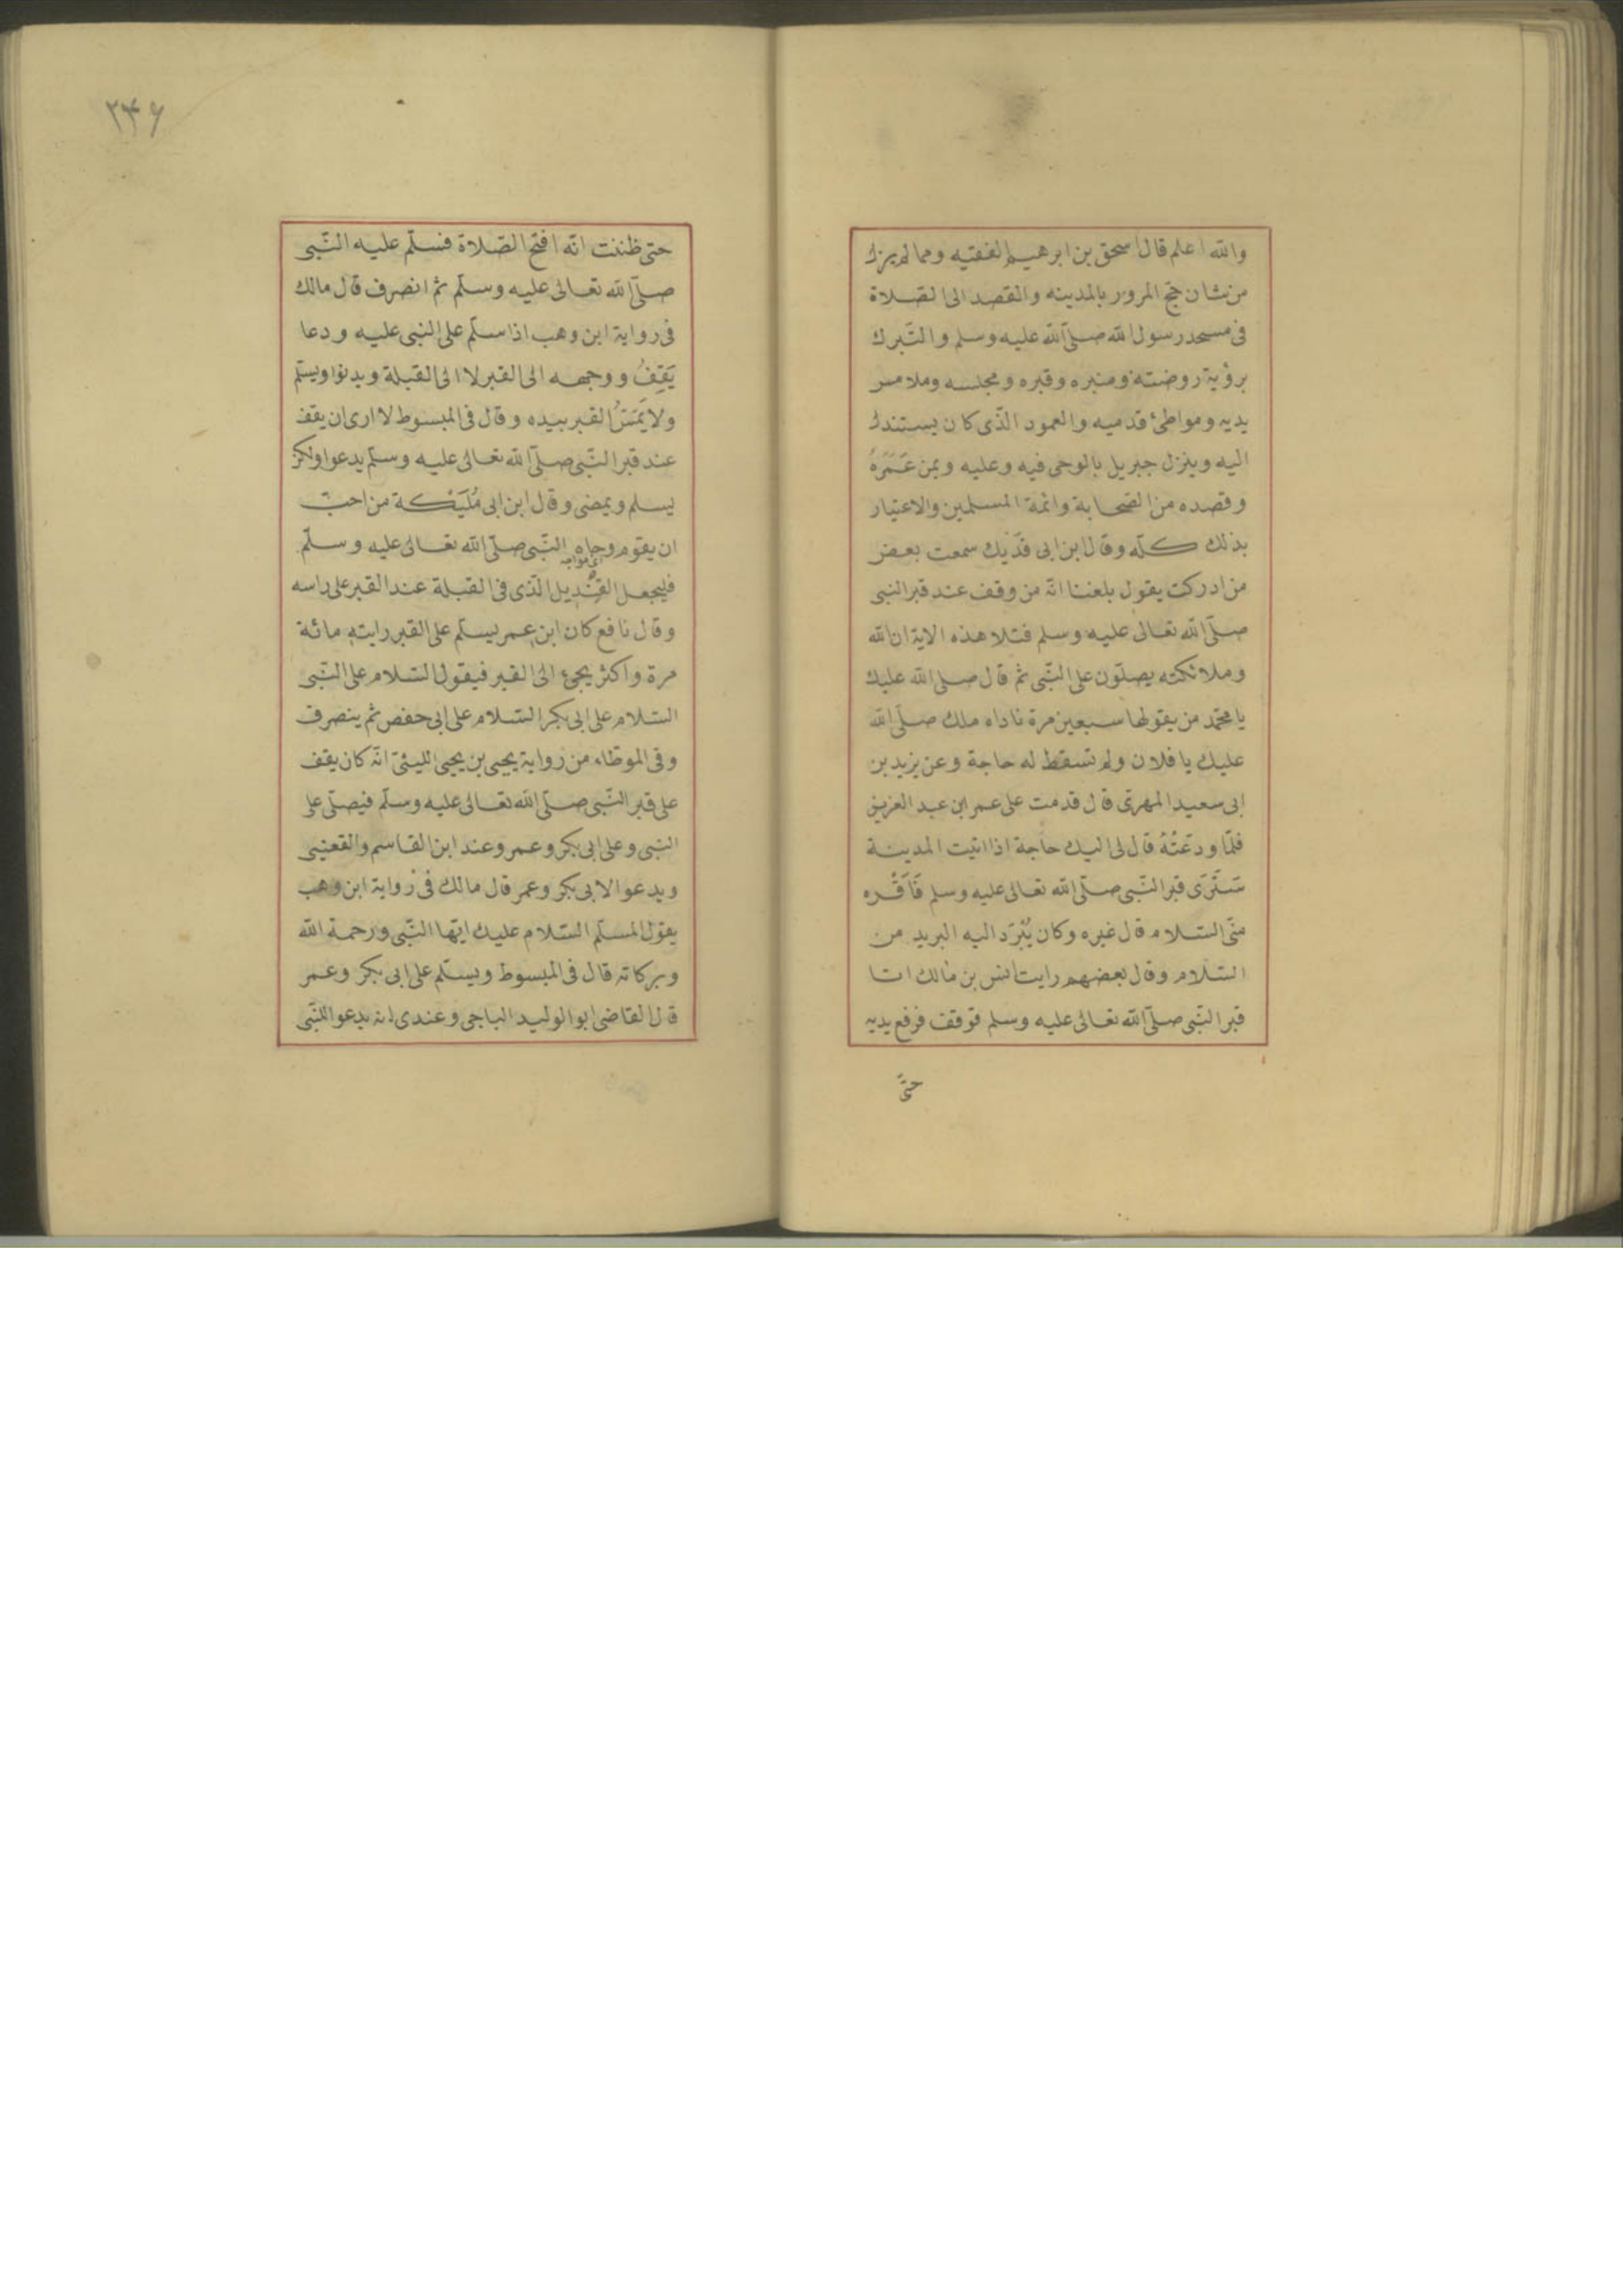 والله اعلم قال اسحق بن ابرهيم الفقيه ومما لم يزل
من شان حج المرور بالمدينه والقصد الى الصلاة
فى مسجد رسول الله صلّى الله عليه وسلم والتّبرك
برؤية روضته ومنبره وقبره ومجلسه وملامس
يديه ومواطئ قدميه والعمود الّذى كان يستند
اليه وينزل جبريل بالوحى فيه وعليه وبمن عَمَرَهُ
وقصده من الصّحابة وائمة المسلمين والاعتبار
بذلك كلّه وقال ابن ابى فدَيك سمعت بعض
من ادركت يقول بلغنا انّه من وقف عند قبر النبى
صلّى الله تعالى عليه وسلم فتلا هذه الاية ان الله
وملائكته يصلّون على النّبى ثم قال صلى الله عليك
يا محمّد من يقولها سبعين مرة ناداه ملك صلّى الله
عليك يا فلان ولم تسقط له حاجة وعن يزيد بن
ابى سعيد المهرىّ قال قدمت على عمر ابن عبد العزيز
فلمّا ودّعْتُهُ قال لى اليك حاجة اذا اتيت المدينة
سَتَرَى قبر النّبى صلّى الله تعالى عليه وسلم فَاَقْره
منّى السلام قال غيره وكان يُبْرَد اليه البريد من
السّلام وقال بعضهم رايت انس بن مالك اتا
قبر النّبى صلّى الله تعالى عليه وسلم فوقف فرفع يديه
حتىّ
٢٣٦
حتى ظننت انّه افتتح الصّلاة فسلّم عليه النّبى
صلّى الله تعالى عليه وسلّم ثم انصرف قال مالك
فى رواية ابن وهب اذا سلّم على النبى عليه ودعا
يَقِفُ ووجهه الى القبر لا الى القبلة ويدنوا ويسلّم
ولا يَمَسُّ القبر بيده وقال فى المبسوط لا ارى ان يقف
عند قبر النّبى صلّى الله تعالى عليه وسلّم يدعوا ولكن
يسلم ويمضى وقال ابن ابى مُلَيْكة من احبّ
ان يقوم وجاه النّبى صلّى الله تعالى عليه وسلّم
اى مواجه
فليجعل القنديل الّذى فى القبلة عند القبر على راسه
وقال نافع كان ابن عمر يسلّم على القبر رايته مائة
مرة واكثر يجئ الى القبر فيقول السّلام على النّبى
السّلام على ابى بكر السّلام على ابى حفص ثم ينصرف
وفى الموطّاء من رواية يحيى بن يحيى الليثىّ انّه كان يقف
على قبر النّبى صلّى الله تعالى عليه وسلّم فيصلّى على
النّبى وعلى ابى بكر وعمر وعند ابن القاسم والقعنبى
ويدعو الابى بكر وعمر قال مالك فى رواية ابن وهب
يقول المسلّم السّلام عليك ايّها النّبى ورحمة الله
وبركاته قال فى المبسوط ويسلّم على ابى بكر وعمر
قال القاضى ابو الوليد الباجى وعندى انه يدعوا للنّبى